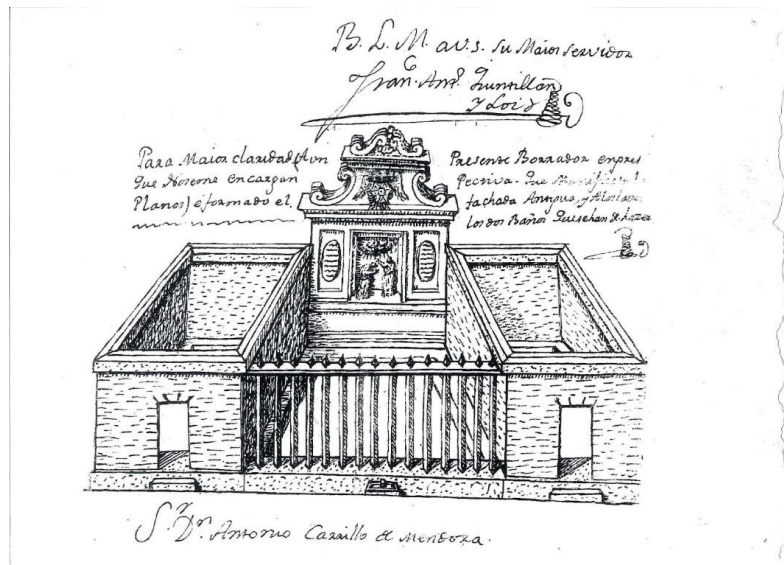 B. L. M. a v. s. su Maior servidor
Fran.co Ant.o Quintillan
y Lois
Para Maior claridad (Aun
que Noseme encargan
Planos) e formado el
Presente Borrador enpres
Pectiva. Que
fachada Antigua, y
los dos Baños Que se han de hazer
S.r D.n Antonio Carrillo de Mendoza.